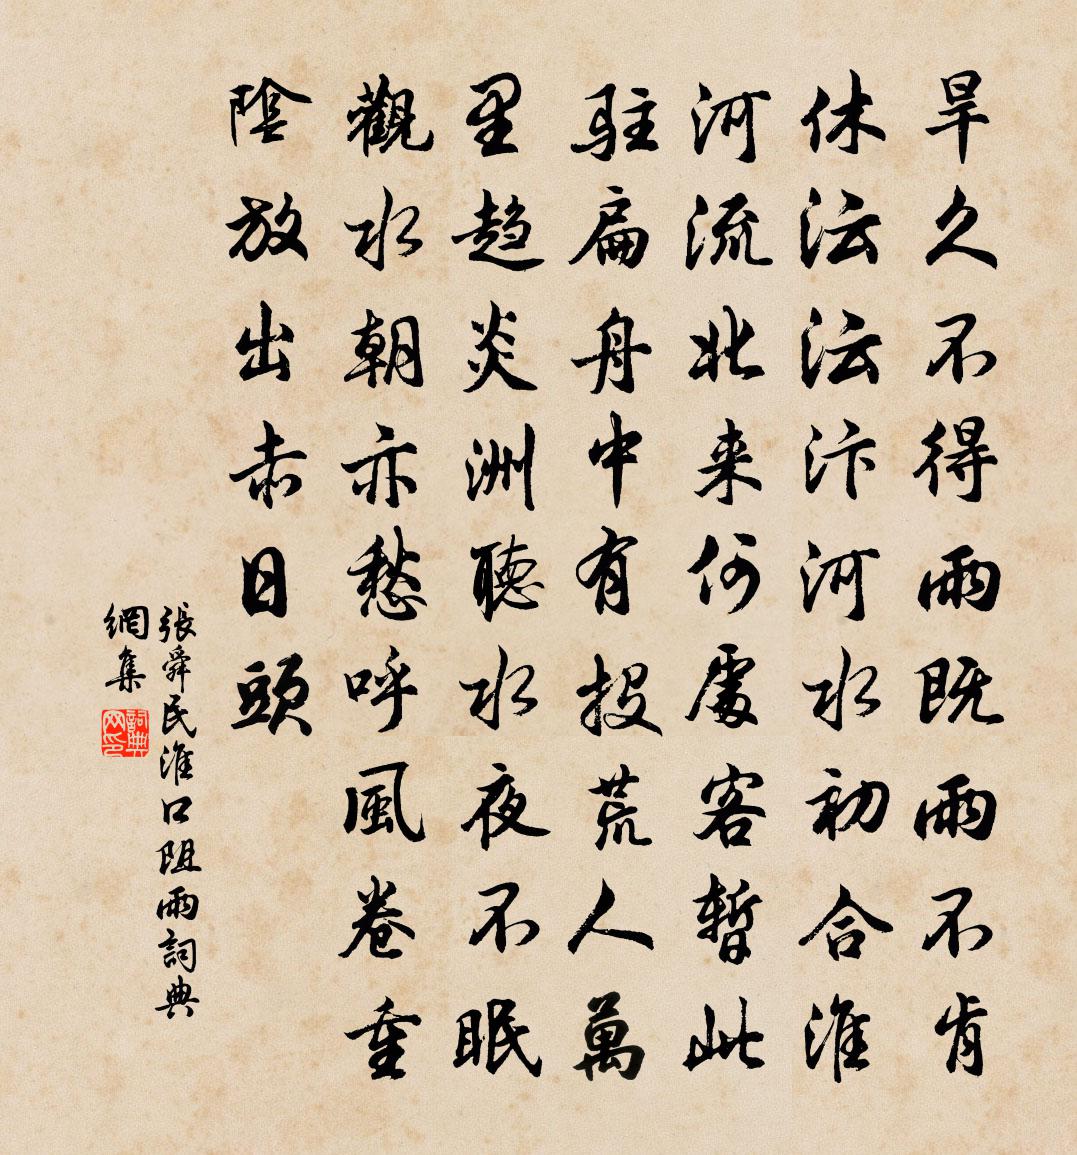 旱久不得雨既雨不肯
休沄沄汴河水初合淮
河流北来何處客暫此
駐扁舟中有投荒人萬
里趋炎洲聽水夜不眠
觀水朝亦愁呼風卷重
陰放出赤日頭
張舜民淮口阻雨詞典
網集
詞典网印